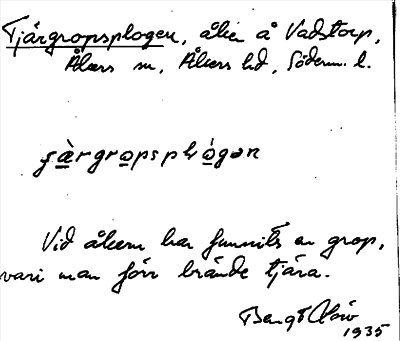 Tjärgropsplogen, åker å Vadstorp,
Åkers sn, Åkers hd, Söderm. l.
çà̱rgro̱psplò̱gən
Vid åkern har funnits en grop,
vari man förr brände tjära.
Bengt
1935